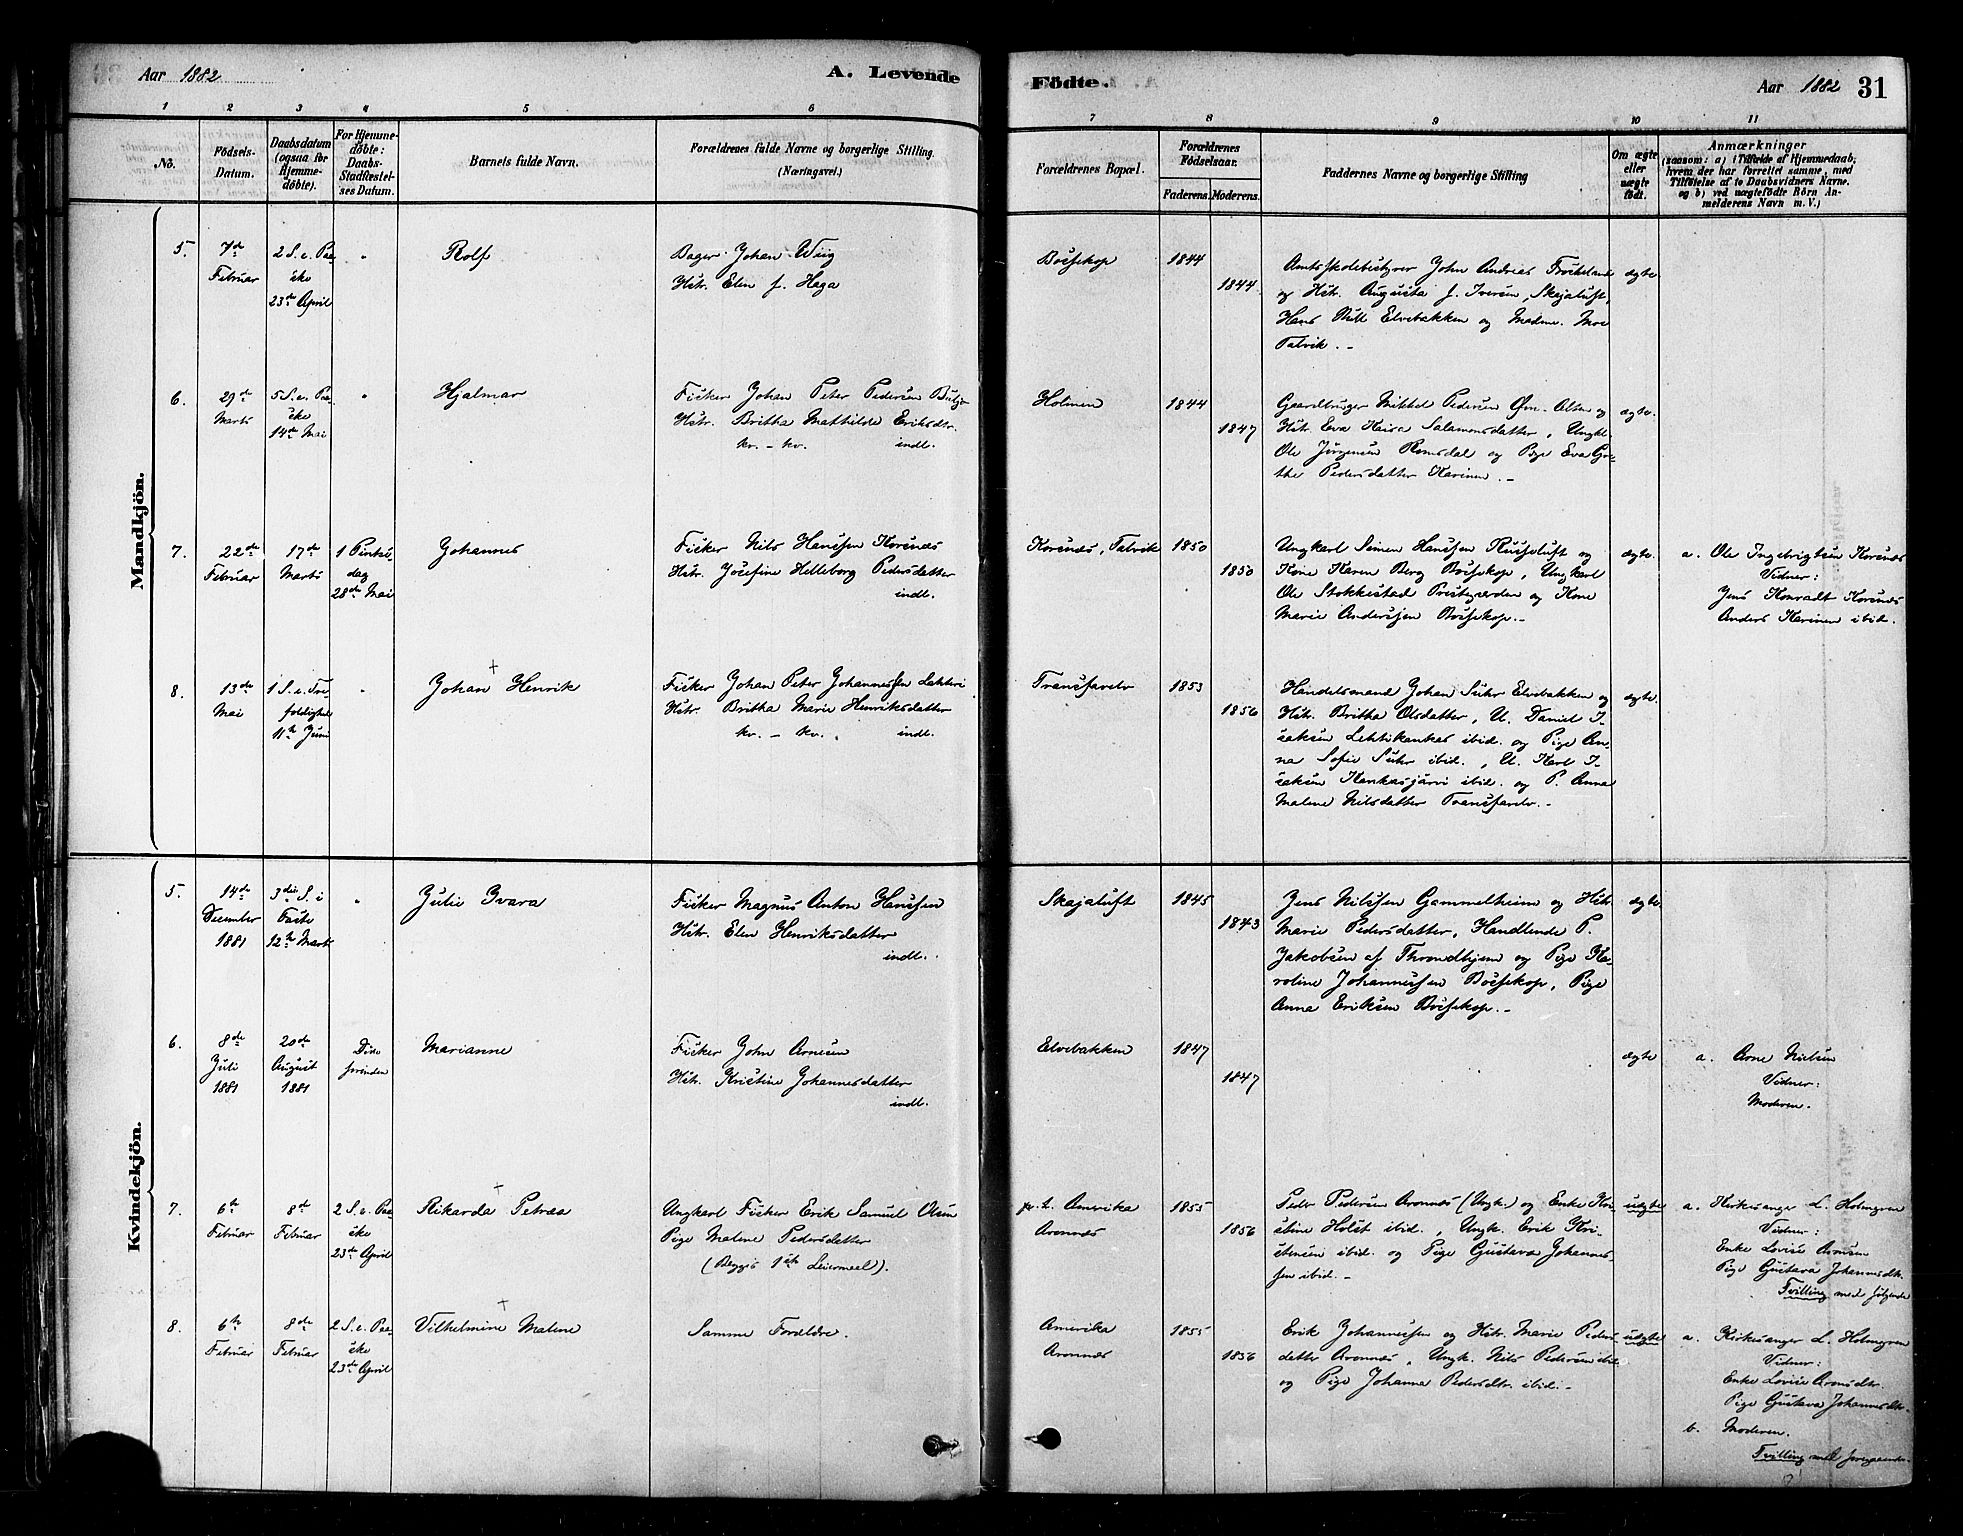 Aar 1882
A. Levende
Födte.
Aar 1882
31
1 2 3 4 5 6 7 8 9 10 11
No.
Födsels-
Datum.
Daabsdatum
(ogsaa för
Hjemme-
döbte).
For Hjemme-
döbte:
Daabs-
Stadfæstel-
ses Datum.
Barnets fulde Navn.
Forældrenes fulde Navne og borgerlige Stilling.
(Næringsvei.)
Forældrenes Bopæl.
Forældrenes
Födselsaar.
Faderens. Moderens.
Faddernes Navne og borgerlige Stilling
Om ægte
eller
uægte
födt.
Anmærkninger
(saasom: a) i Tilfælde af Hjemmedaab,
hvem der har forrettet samme, med
Tilföielse af to Daabsvidners Navne,
og b) ved uægtefödte Börn An-
melderens Navn m. V.)
Mandkjön.
5.
7de
Februar
2 S. e. Paa-
ske
23de April
"
Rolf
Bager Johan Wiig
Hstr. Elen f. Haga
Bossekop
1844
1844
Amtsskolebestyrer John Andreas Frøkeland
og Hstr. Augusta f. Iversen, Skajaluft,
Hans Bull Elvebakken og Madme. Moe
Talvik. -
ægte
6.
29de
Marts
5 S. e. Paa-
ske
14de Mai
"
Hjalmar
Fisker Johan Peter Pedersen
Hstr. Britha Mathilde Eriksdtr.
kv. - kv. indl.
Holmen
1844
1847
Gaardbruger Mikkel Pedersen Øvre Alten og
Hstr. Eva Kaisa Salamonsdatter, Ungkl.
Ole Jørgensen Romsdal og Pige Eva Gre-
the Pedersdatter Karinen. -
ægte.
7.
22de
Februar
17de
Marts
1 Pintse-
dag
28de Mai
Johannes
Fisker Nils Hanssen Korsnæs
Hstr. Josefine Helleborg Pedersdatter
indl.
Korsnæs, Talvik
1850
1850
Ungkarl Simon Hanssen Russeluft og
Kone Karen Berg Bossekop, Ungkarl
Ole Stokkestad Prestgaarden og Kone
Marie Anderssen Bossekop. -
ægte.
a. Ole Ingebrigtsen Korsnæs
Vidner:
Jens Konradt Korsnæs
Anders Karinen ibid.
8.
13de
Mai
1 S. e. Tre-
foldighed
11te Juni
"
+
Johan Henrik
Fisker Johan Peter Johannessen Lakteri
Hstr. Britha Marie Henriksdatter
kv. - kv. indl.
Transfarelv
1853
1856
Handelsmand Johan Suhr Elvebakken og
Hstr. Britha Olsdatter, U. Daniel I-
saksen Lehtikankas ibid. og Pige An-
na Sofie Suhr ibid., U. Karl I-
saksen Kankasjärvi ibid. og P. Anna
Malene Nilsdatter Transfarelv. -
ægte.
Kvindekjön.
5.
14de
December
1881
3die S. i
Faste
12te Marts
"
Julie Ivara
Fisker Magnus Anton Hanssen
Hstr. Elen Henriksdatter
indl.
Skajaluft
1845
1843
Jens Nilssen Gammelheim og Hstr.
Marie Pedersdatter, Handlende P.
Jakobsen af Throndhjem og Pige Ka-
roline Johannessen Bossekop, Pige
Anna Eriksen Bossekop. -
ægte.
6.
8de
Juli
1881
20de
August
1881
Døde
forinden
Marianne
Fisker John Arnesen
Hstr. Kristine Johannesdatter
indl.
Elvebakken
1847
1847
ægte
a. Arne Nielsen
Vidner:
Moderen.
7.
6te
Februar
8de
Februar
2 S. e. Paa-
ske
23de April
+
Rikarda Petræa
Ungkarl Fisker Erik Samuel Olsen
Pige Malene Pedersdatter
(Begges 1ste Leiermaal).
p. t. Amerika
Aronnæs
1855
1856
Peder Pedersen Aronnæs (Ungk.) og Enke Kri-
stine Holst ibid., Ungk. Erik Kri-
stensen ibid. og Pige Gustava Johannes-
sen ibid. -
uægte
a. Kirkesanger L. Holmgren
Vidner:
Enke Lovise Aronsen
Pige Gustava Johannesdtr.
Tvilling med følgende
8.
6te
Februar
8de
Februar
2 S. e. Paa-
ske
23de April
+
Vilhelmine Malene
Samme Forældre.
Amerika
Aronnæs
1855
1856
Erik Johannessen og Hstr. Marie Peders-
datter Aronnæs, Ungk. Nils Pedersen ibid.
og Pige Johanna Pedersdtr. ibid. -
uægte
a. Kirkesanger L. Holmgren
Vidner:
Enke Lovise Aronsdtr.
Pige Gustava Johannesdtr.
b. Moderen.
Tvilling med foregaaende.